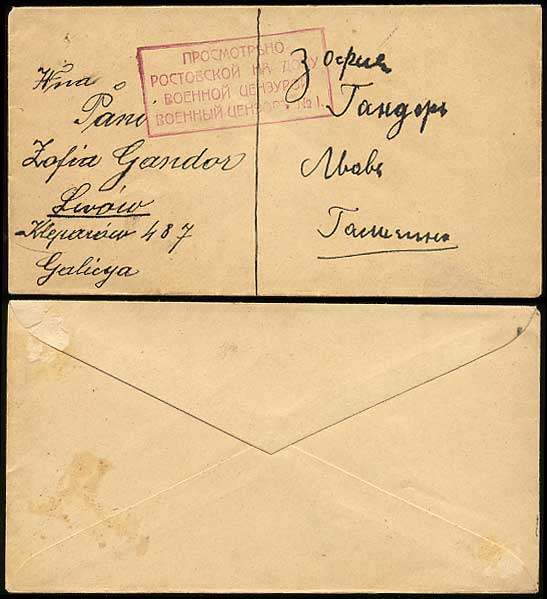 ПРОСМОТРѢНО
РОСТОВСКОЙ НА ДОНУ
ВОЕННОЙ ЦЕНЗУРОЙ
ВОЕННЫЙ ЦЕНЗОРЪ № 1.
Wna
Pani
Zofia Gandor
Lwów
Kleparów 487
Galicya
Зофия
Гандоръ
Львовъ